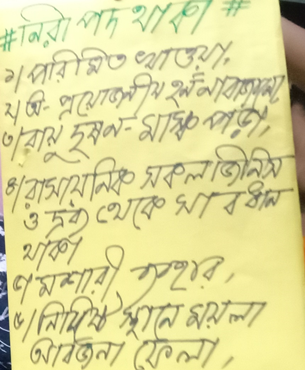 #নিরাপদ থাকা#
১/ পরিমিত খাওয়া,
২/ অ-প্রয়োজনীয় হর্ন না বাজানো
৩/ বায়ু দূষন-মাস্ক পড়া,
৪/ রাসায়নিক সকল জিনিস
ও দ্রব্য থেকে সাবধান
থাকা
৫/ মশারী ব্যবহার,
৬/ নির্দিষ্ট স্থানে ময়লা
আবর্জনা ফেলা,